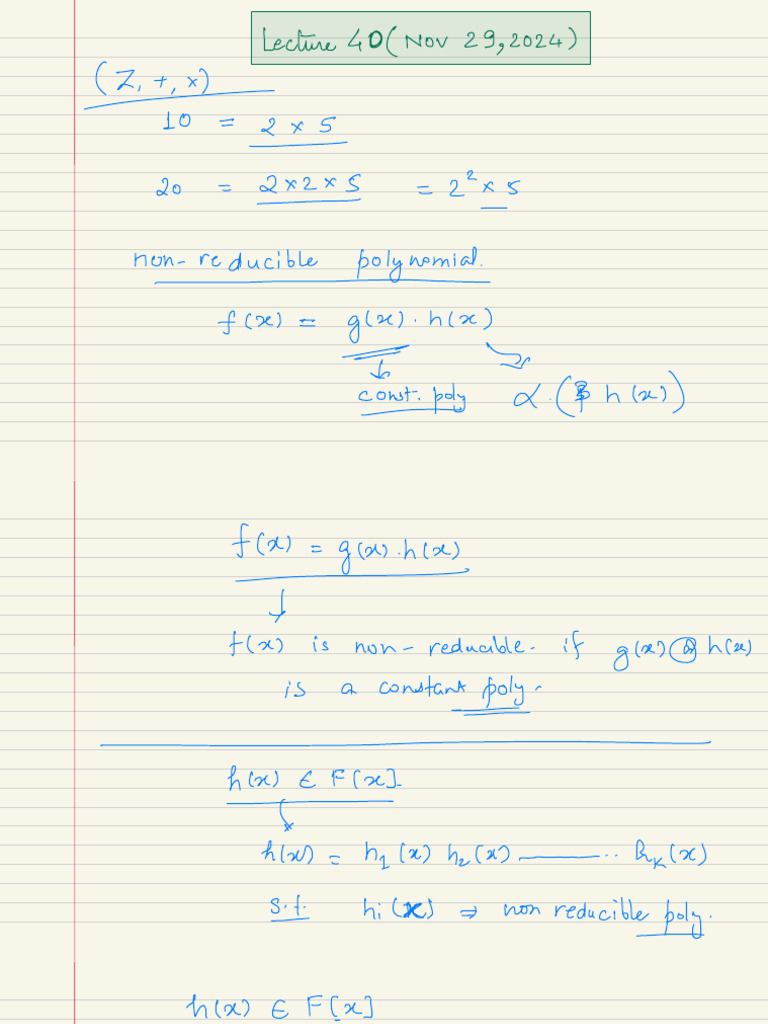 Lecture 40 (Nov 29, 2024)
(Z, +, ×)
10 = 2 × 5
20 = 2 × 2 × 5 = 2² × 5
non-reducible polynomial.
f(x) = g(x) · h(x)
const. poly α · ( h(x))
f(x) = g(x) · h(x)
f(x) is non-reducible. if g(x) or h(x)
is a constant poly.
h(x) ∈ F[x].
h(x) = h₁(x) h₂(x) ——— .. hₖ(x)
s.t. hi(x) ⇒ non reducible poly.
h(x) ∈ F[x]